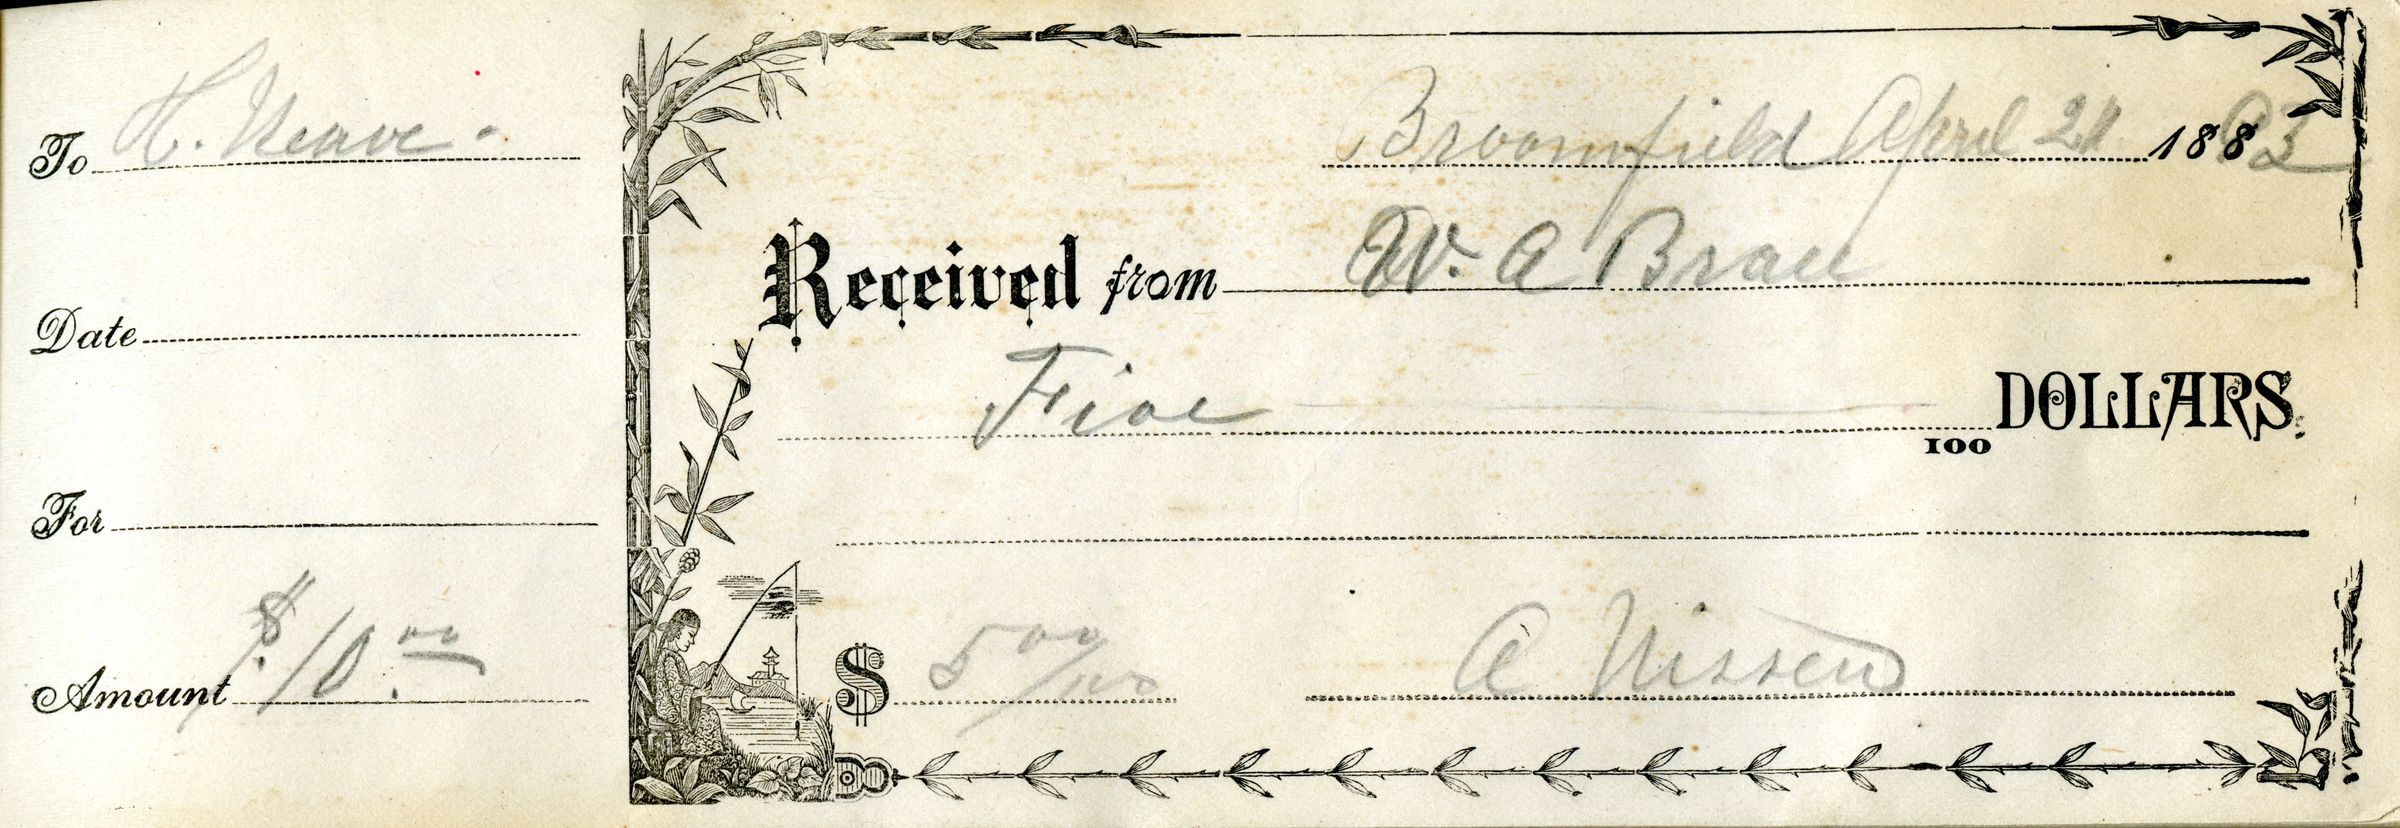 To H. Neave.
Date
For
Amount $10.00
Broomfield April 21 188 93
Received from W. A Brau
Five
100 DOLLARS.
$ 5 00/100 A Nissen